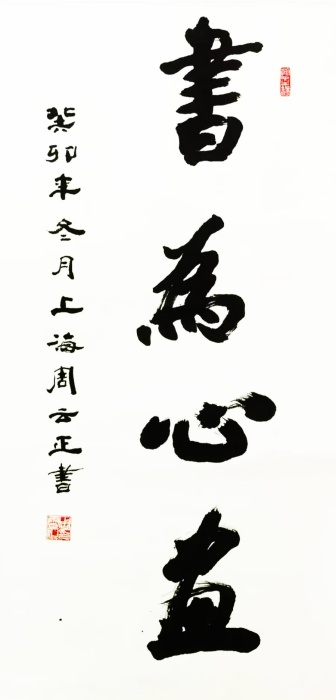 書為心画
癸卯年冬月上海周云正書